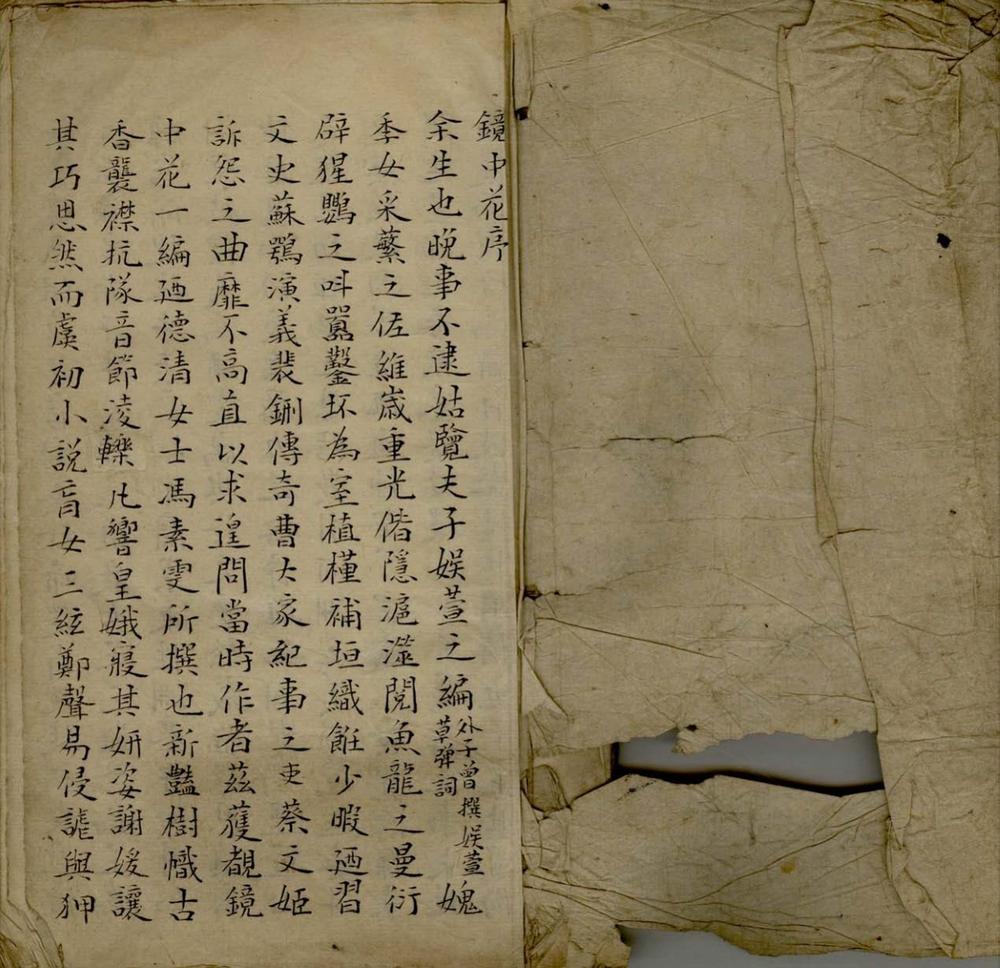 鏡中花序
余生也晚事不逮姑覽夫子娛萱之編外子曾撰娛萱草彈詞媿
季女采蘩之佐維歲重光偕隱滬澨閱魚龍之曼衍
辟猩鸚之呌嚻鑿坏為室植槿補垣織餁少暇廼習
文史蘇鶚演義裴鉶傳奇曹大家紀事之吏蔡文姬
訴怨之曲靡不高直以求遑問當時作者茲獲覩鏡
中花一編廼德清女士馮素雯所撰也新豔樹幟古
香襲襟抗隊音節淩轢凡響皇娥寑其妍姿謝媛讓
其巧思然而虞初小說盲女三絃鄭聲易侵謔與狎